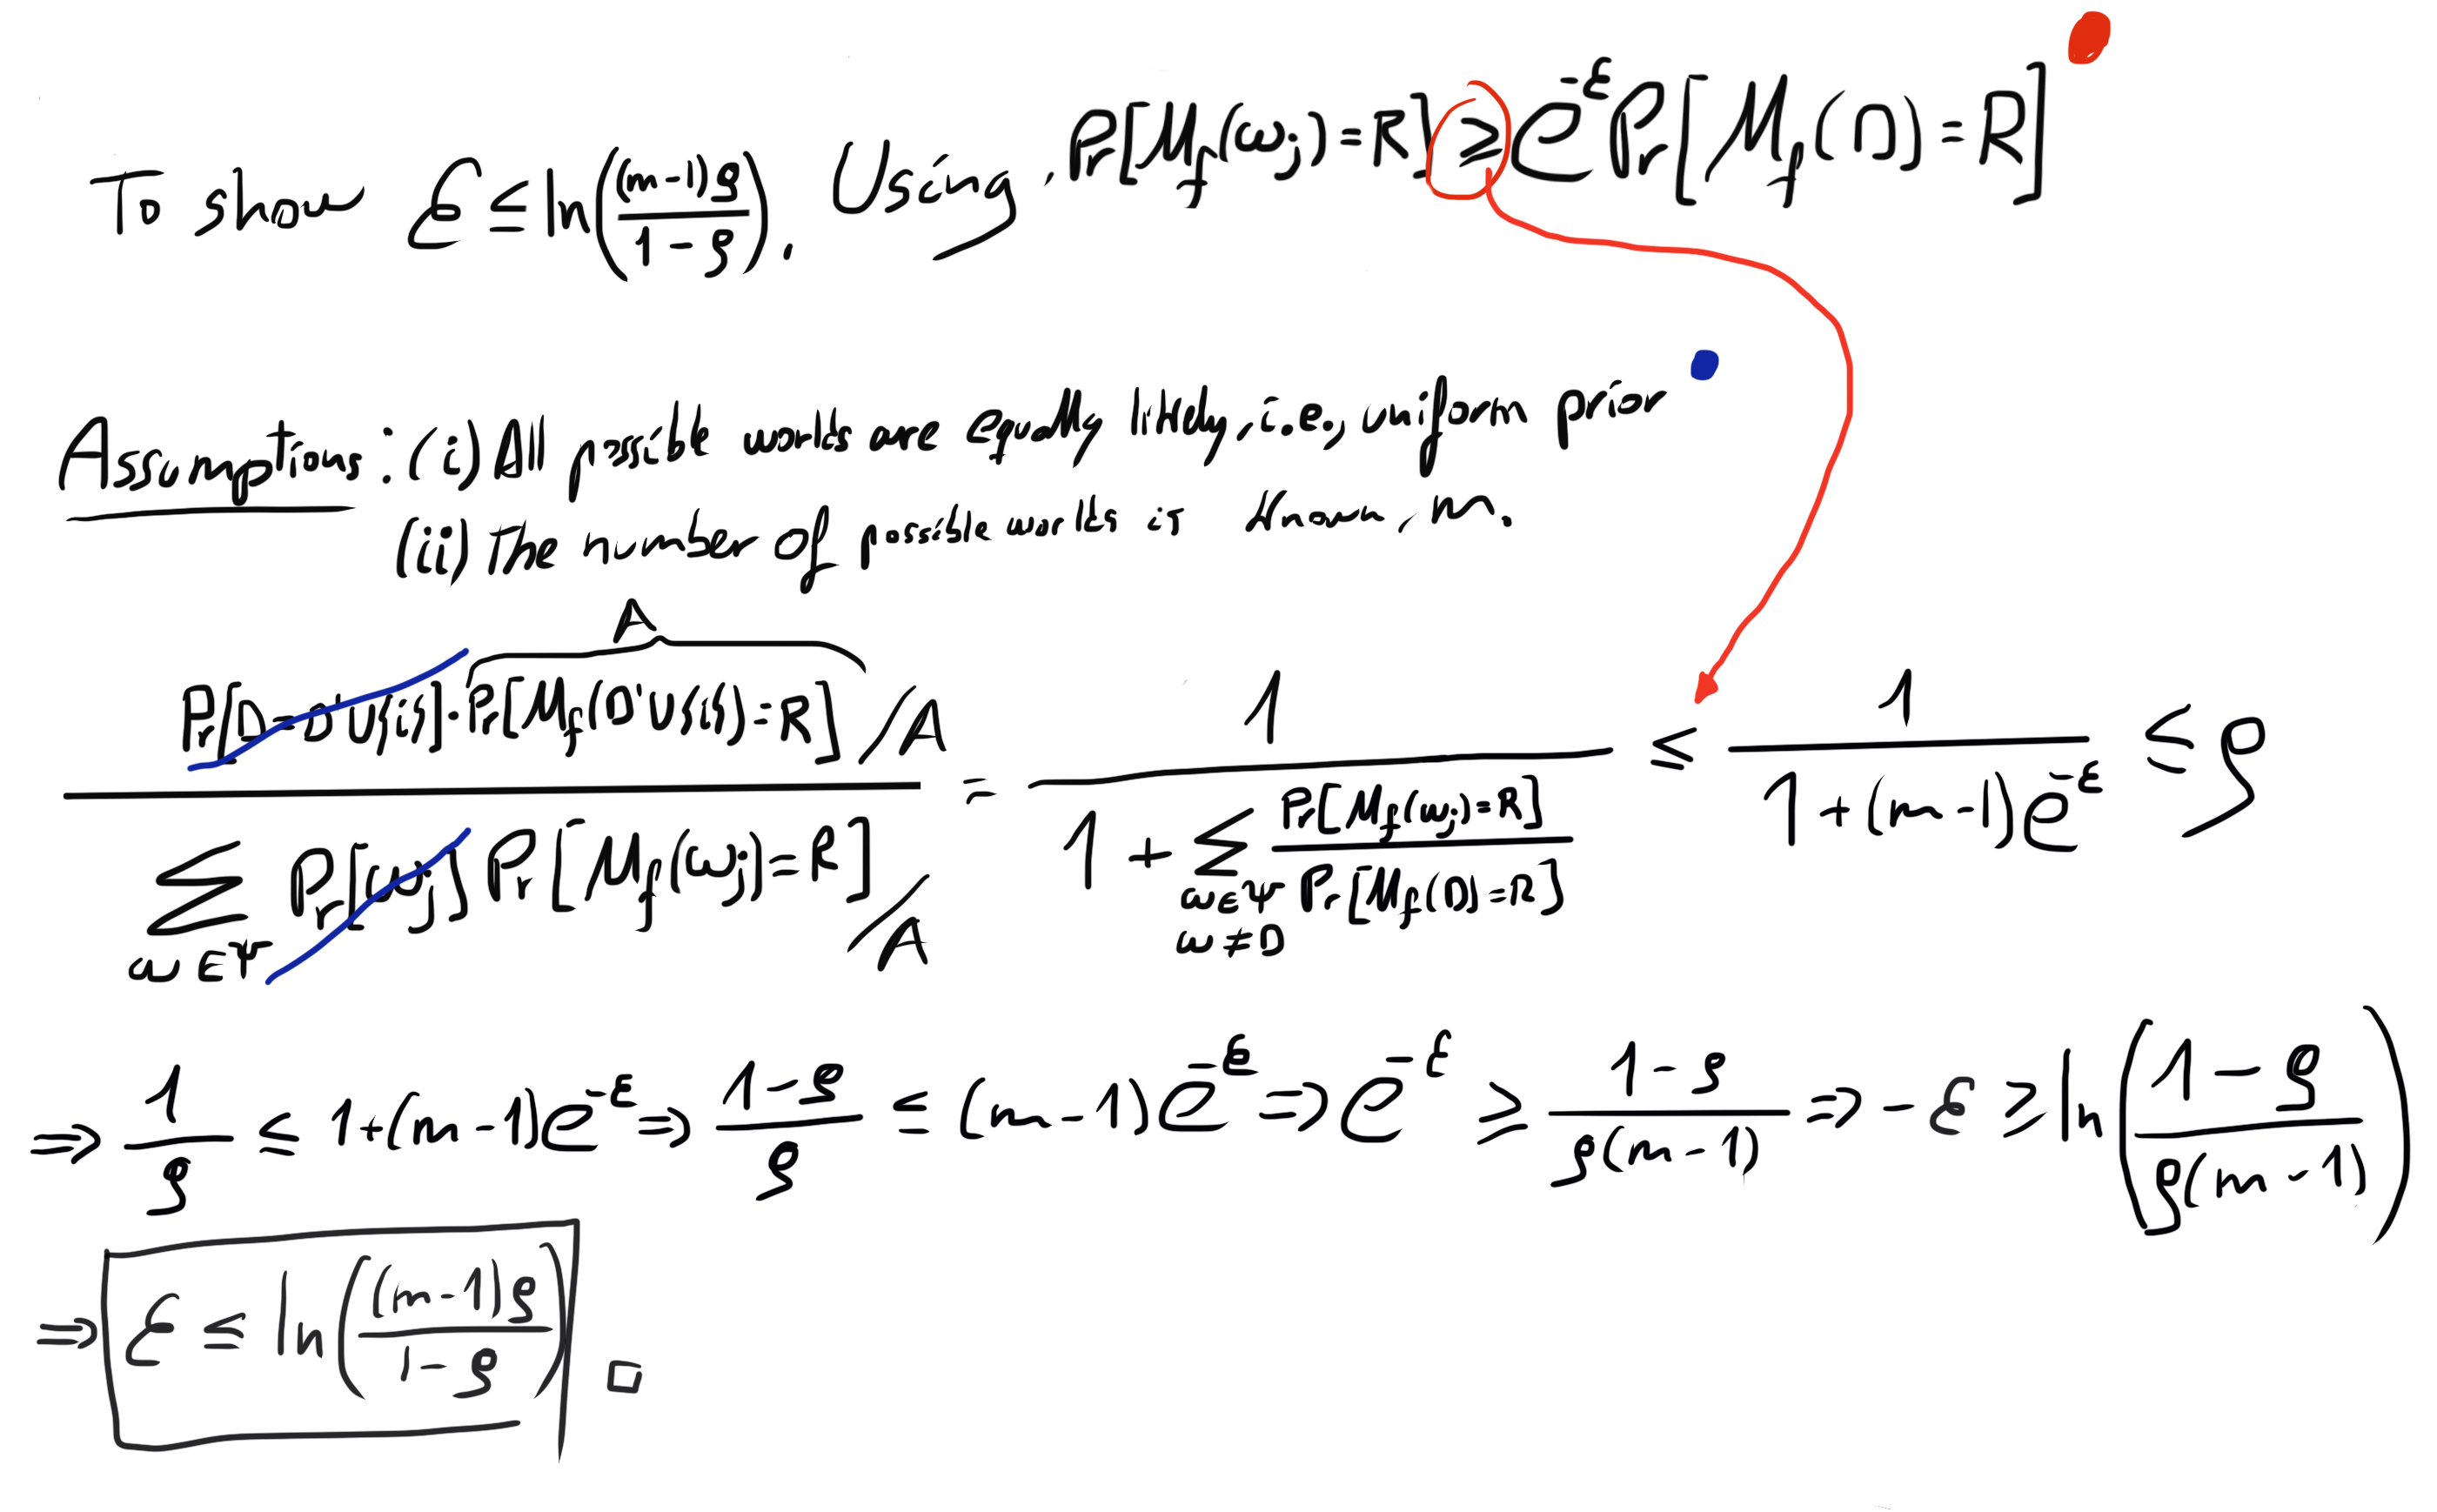 To show ε ≤ ln((m-1)ρ / (1-ρ)). Using, Pr[M_f(ω_j)=R] ≥ e^{-ε} Pr[M_f(D)=R]
Assumptions: (i) All possible worlds are equally likely, i.e., uniform prior
(ii) the number of possible worlds is known, m.
A
Pr[D=D'∪{i}]·Pr[M_f(D'∪{i})=R] /A
/ ∑_{ω∈Ψ} Pr[ω_j] Pr[M_f(ω_j)=R] /A = 1 / (1 + ∑_{ω∈Ψ, ω≠D} Pr[M_f(ω_j)=R] / Pr[M_f(D)=R]) ≤ 1 / (1+(m-1)e^{-ε}) ≤ ρ
⇒ 1/ρ ≤ 1+(m-1)e^{-ε} ⇒ (1-ρ)/ρ ≤ (m-1)e^{-ε} ⇒ e^{-ε} ≥ (1-ρ) / (ρ(m-1)) ⇒ -ε ≥ ln((1-ρ) / (ρ(m-1)))
⇒ ε ≤ ln((m-1)ρ / (1-ρ)) □